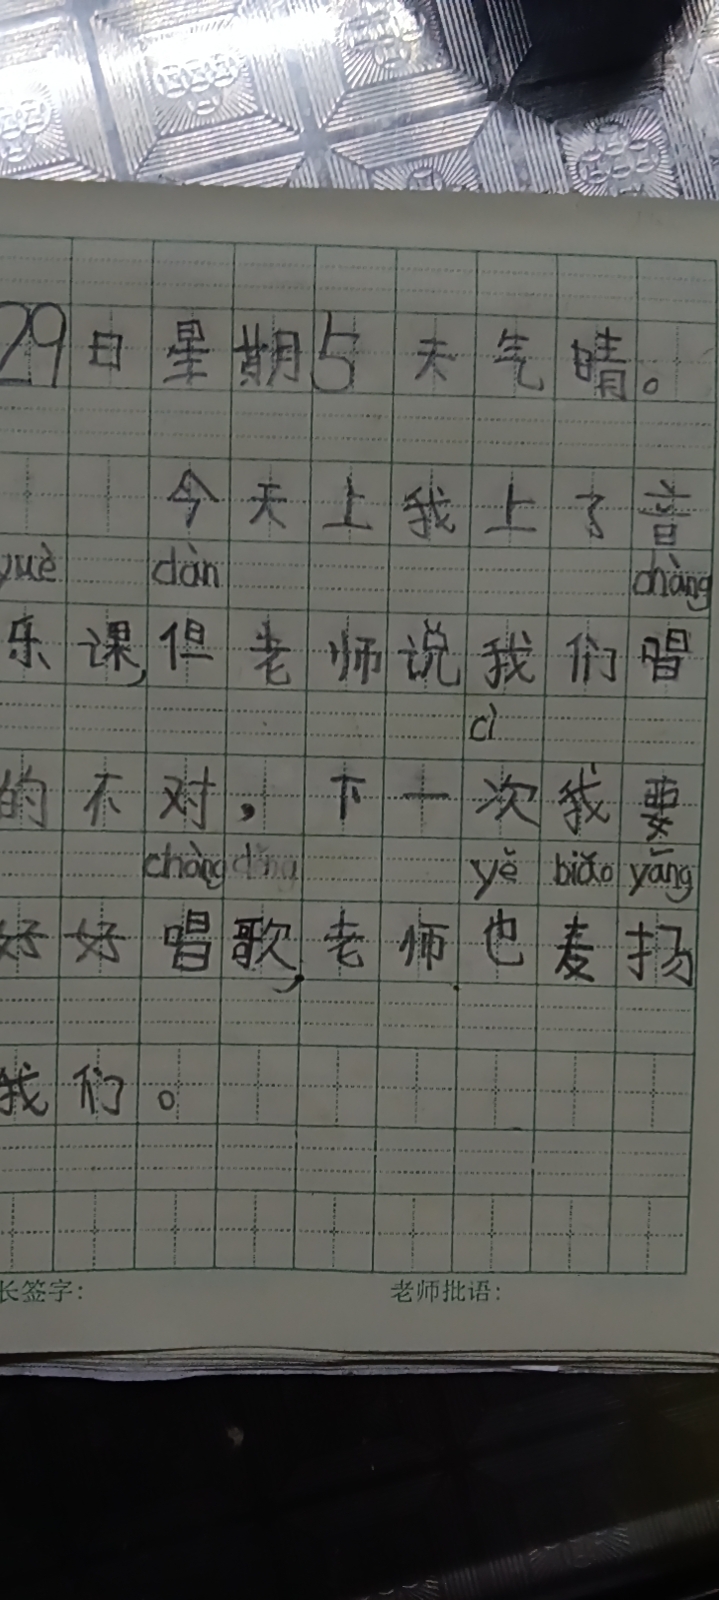 29日星期5天气晴。
今天上我上了音
yuè dàn chàng
乐课,但老师说我们唱
cì
的不对，下一次我要
chàng yě biǎo yáng
好好唱歌,老师也麦扬
我们。
长签字: 老师批语: